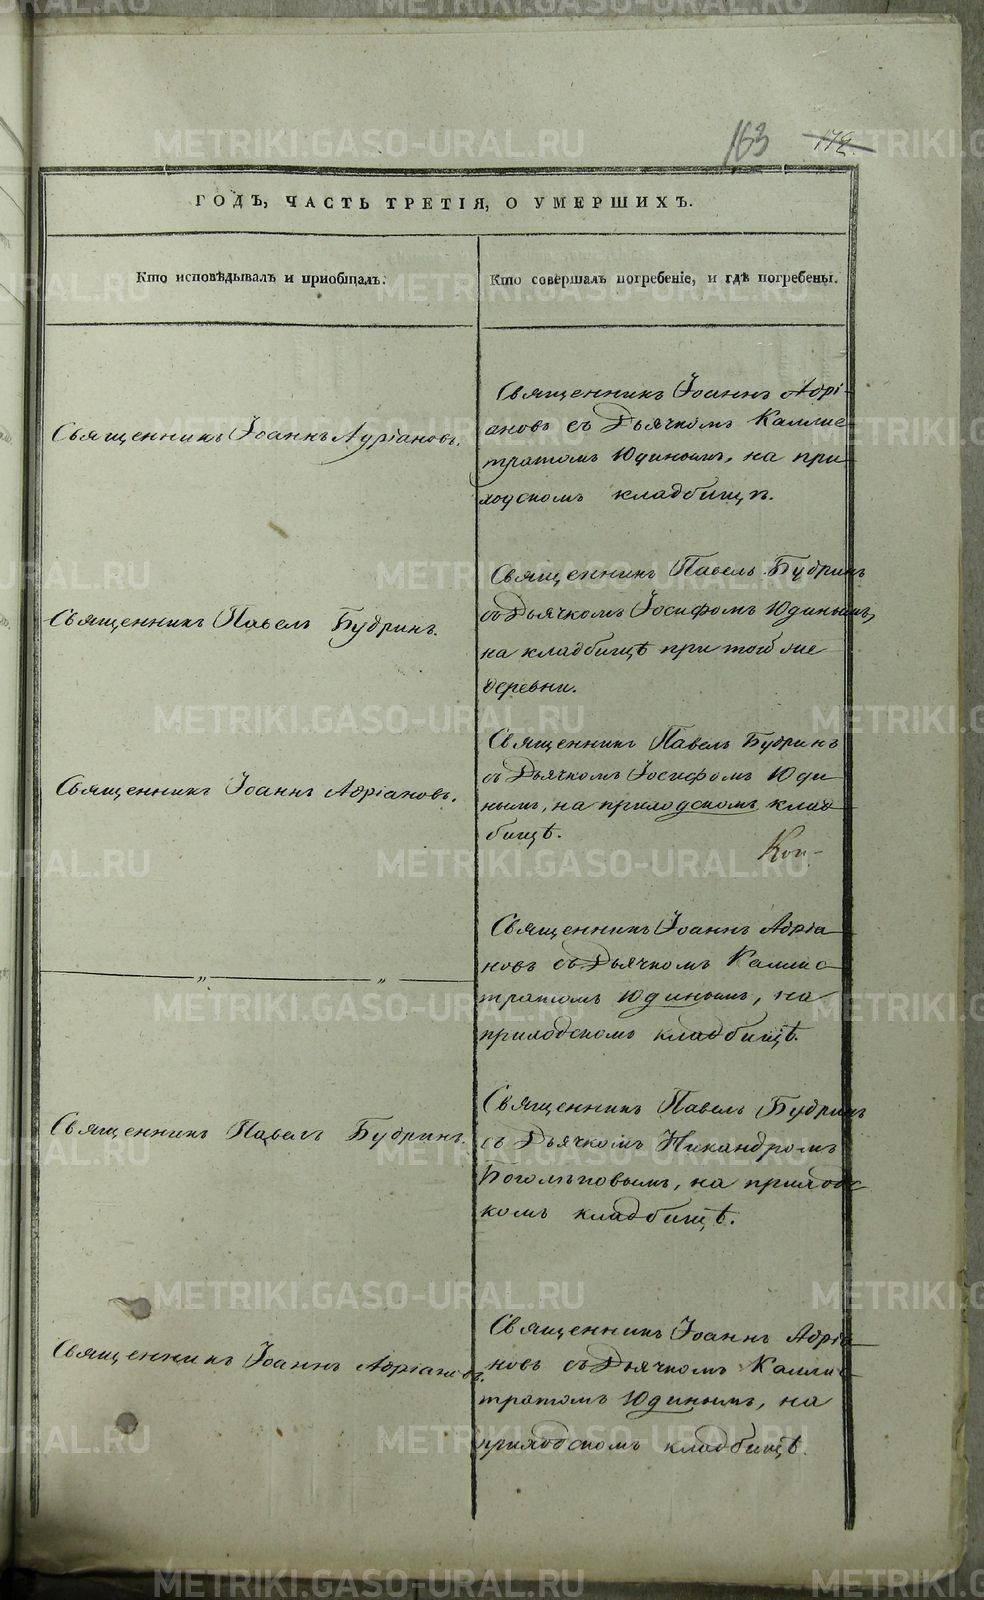 163 172.
ГОДЪ, ЧАСТЬ ТРЕТІЯ, О УМЕРШИХЪ.
Кто исповѣдывалъ и приобщалъ.
Кто совершалъ погребеніе, и гдѣ погребены.
Священникъ Іоаннъ Адріановъ.
Священникъ Іоаннъ Адрі-
ановъ съ Дьячкомъ Каллис
тратомъ Юдинымъ, на при
ходскомъ кладбищѣ.
Священникъ Павелъ Будринъ.
Священникъ Павелъ Будринъ
съ Дьячкомъ Іосифомъ Юдинымъ,
на кладбищѣ при той же
деревни.
Священникъ Іоаннъ Адріановъ.
Священникъ Павелъ Будринъ
съ Дьячкомъ Іосифомъ Юди
нымъ, на приходскомъ клад
бищѣ.
Коп-
„ „
Священникъ Іоаннъ Адріа
новъ съ Дьячкомъ Каллис
тратомъ Юдинымъ, на
приходскомъ кладбищѣ.
Священникъ Павелъ Будринъ.
Священникъ Павелъ Будринъ
съ Дьячкомъ Никандромъ
Боголѣповымъ, на приходс
комъ кладбищѣ.
Священникъ Іоаннъ Адріановъ.
Священникъ Іоаннъ Адріа
новъ съ Дьячкомъ Каллис
тратомъ Юдинымъ, на
приходскомъ кладбищѣ.
METRIKI.GASO-URAL.RU